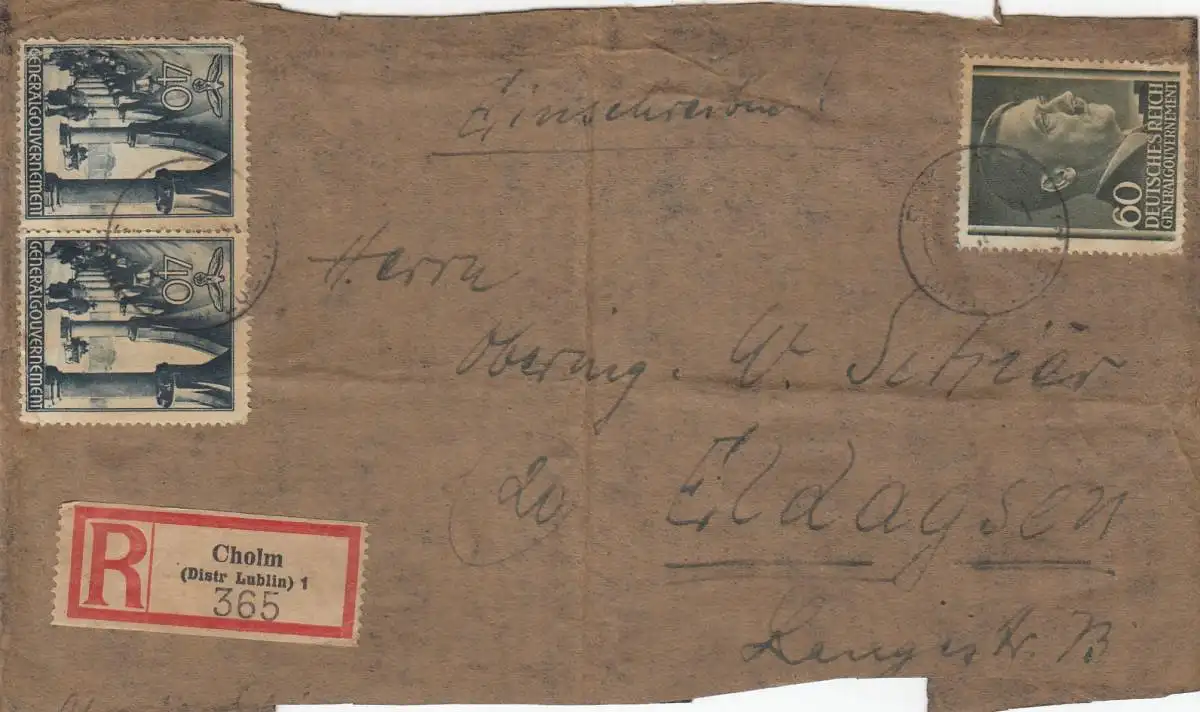 GENERALGOUVERNEMENT
40
GENERALGOUVERNEMENT
40
60
DEUTSCHES REICH
GENERALGOUVERNEMENT
Einschreiben!
Herrn
Obering. W.
(20) Eldagsen
Langestr.
R
Cholm
(Distr Lublin) 1
365